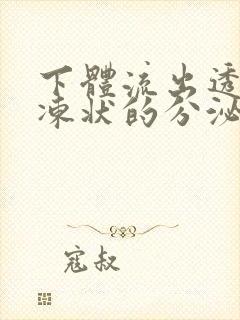 下體流出透
凍狀的分泌
寇叔